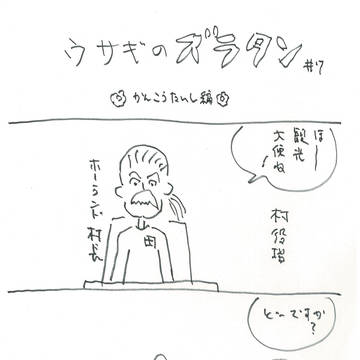 ウサギのズラタン #7
かんこうたいし編
ほー
観光
大使ね
村役場
ホーランド村長
田
どーですか?